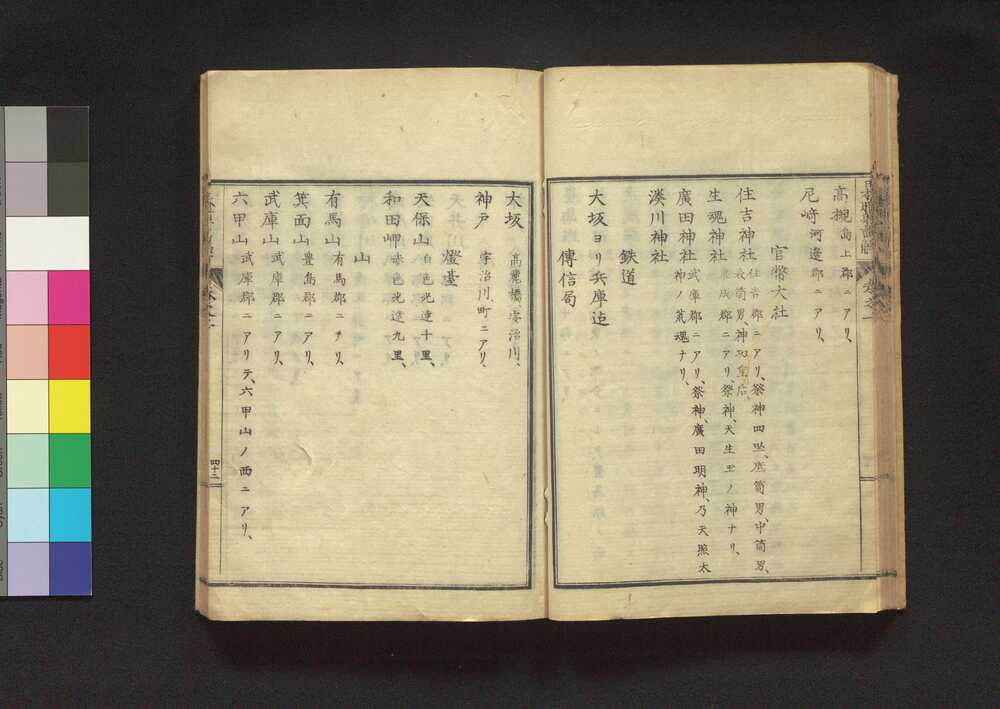 高槻 島上郡ニアリ、
尼崎 河邊郡ニアリ、
官幣大社
住吉神社 住吉郡ニアリ、祭神四坐、底筒男、中筒男、
表筒男、神功皇后、
生魂神社 東成郡ニアリ、祭神、天生玉ノ神ナリ、
廣田神社 武庫郡ニアリ、祭神、廣田明神、乃天照太
神ノ荒魂ナリ、
湊川神社
鉄道
大坂ヨリ兵庫迠
傳信局
大坂 高麗橋、安治川、
神戸 宇治川町ニアリ、
燈臺
天保山 白色光達十里、
和田岬 赤色光達九里、
山
有馬山 有馬郡ニアリ、
箕面山 豊島郡ニアリ、
武庫山 武庫郡ニアリ、
六甲山 武庫郡ニアリテ、六甲山ノ西ニアリ、
四十三